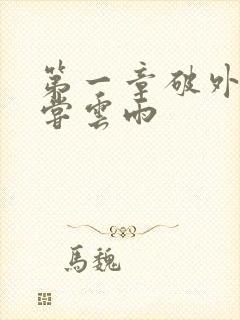 第一章破外
嘗雲雨
馬魏